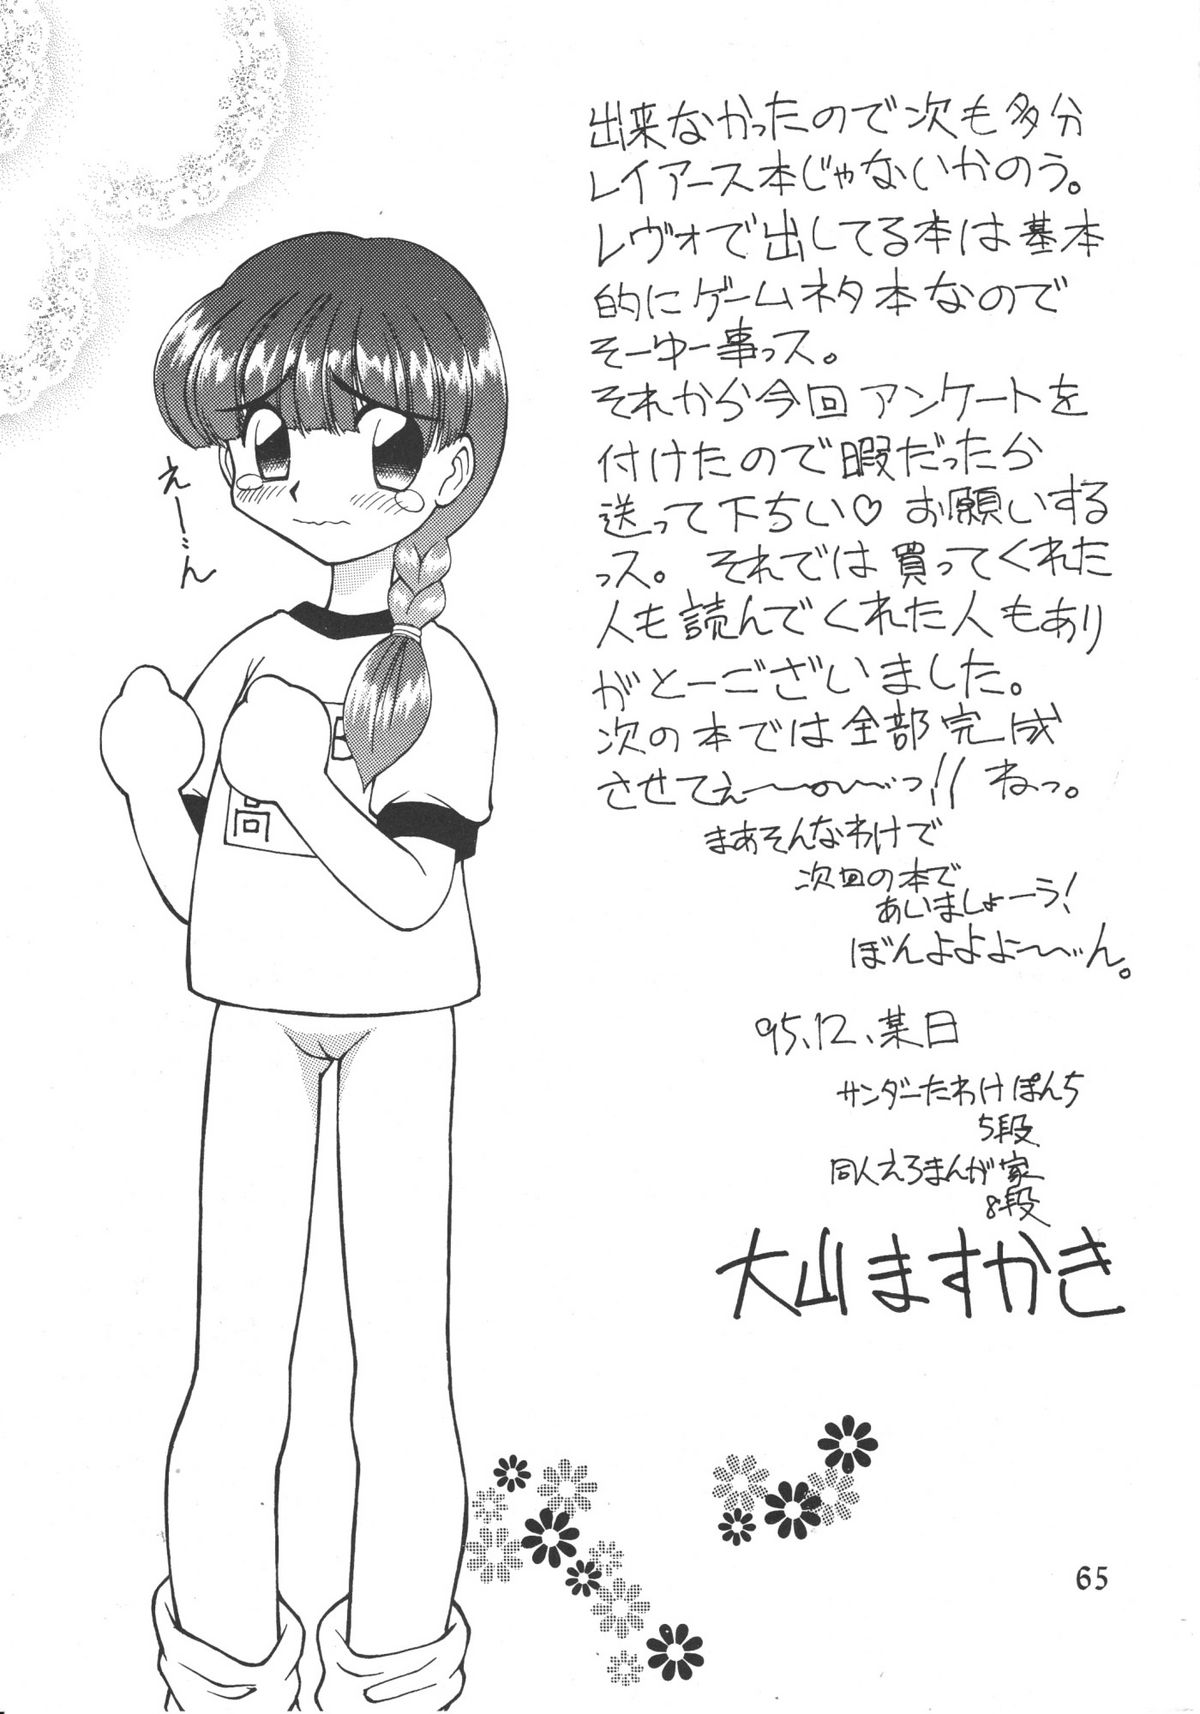 出来なかったので次も多分
レイアース本じゃないかのう。
レヴォで出してる本は基本
的にゲームネタ本なので
そーゆー事っス。
それから今回アンケートを
付けたので暇だったか
送って下ちい♡お願いする
っス。それでは買ってくれた
人も読んでくれた人もあり
がとーございました。
次の本では全部完成
させてぇ〜〜〜っ!! ねっ。
まあそんなわけで
次回の本で
あいましょーう!
ぼんよよよ〜ん。
95.12.某日
サンダーたわけぽんち
5段
同人えろまんが家
8段
大山ますかき
えーん
高
65